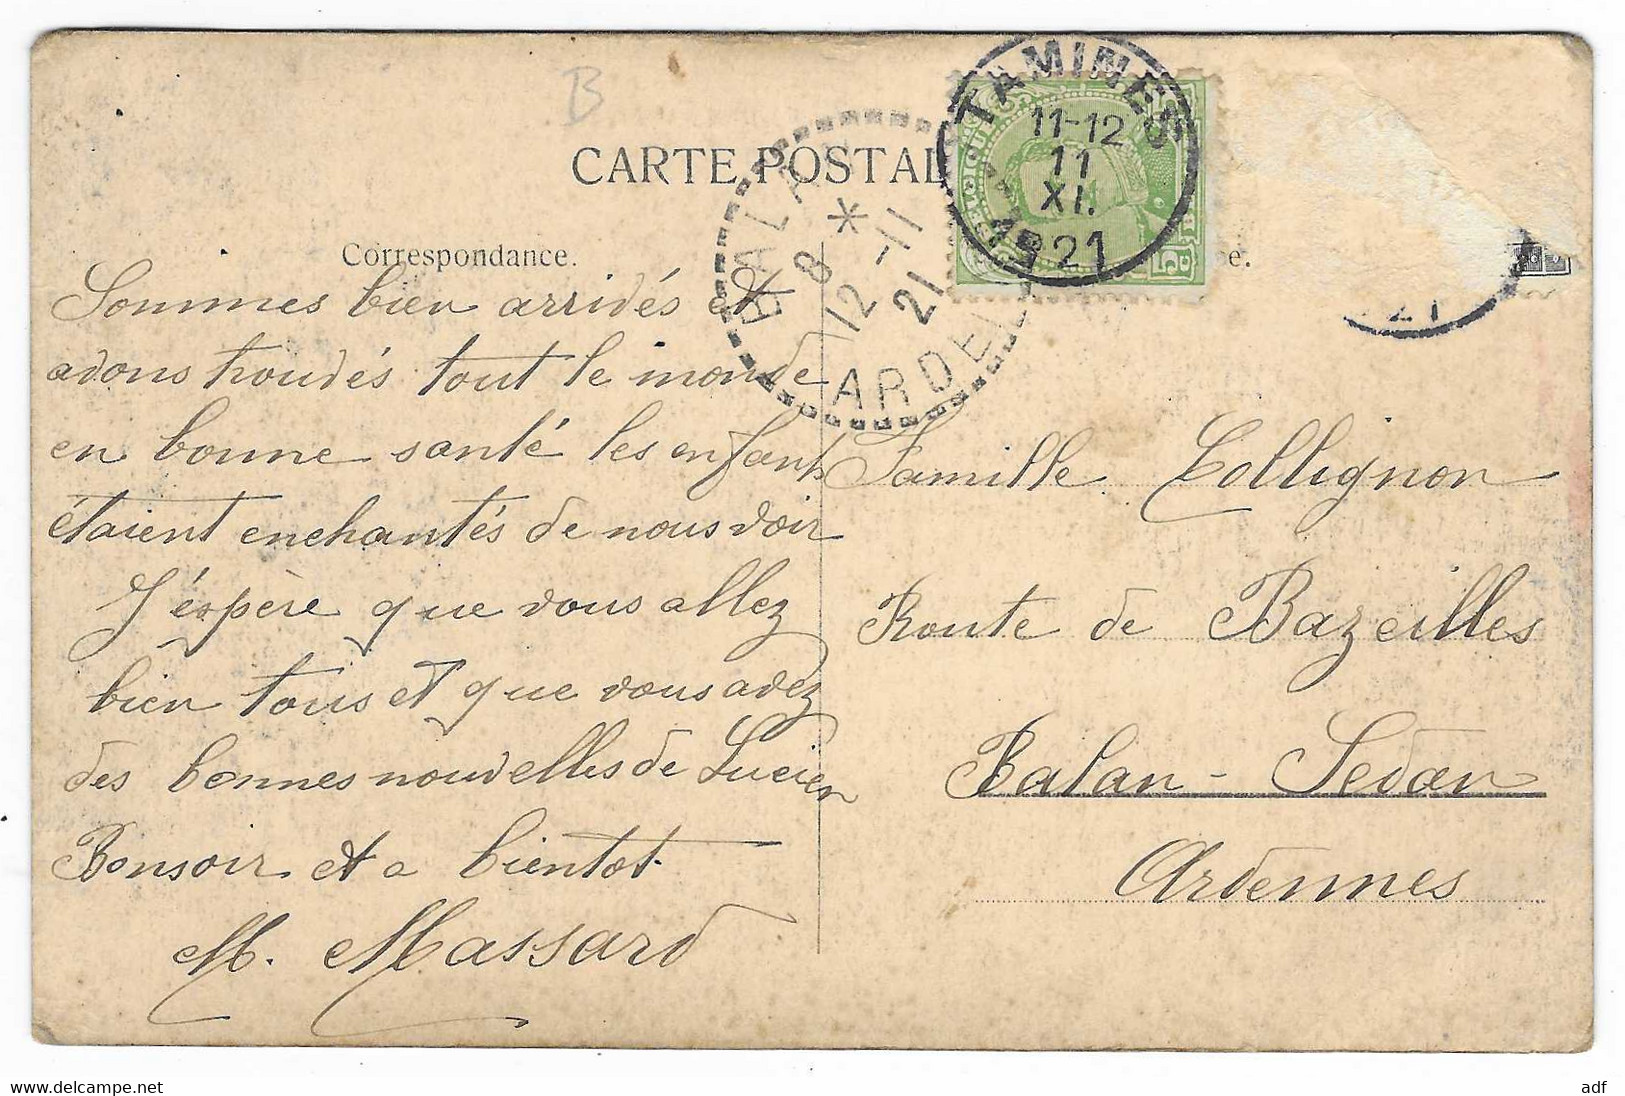 B
CARTE POSTAL
TAMINES
11-12
11
XI.
1921
5c
BALA
8 *
12-11
21
ARDE
Correspondance.
21
Sommes bien arrivés et
avons trouvés tout le monde
en bonne santé les enfants
étaient enchantés de nous voir
J'éspère que vous allez
bien tous et que vous avez
des bonnes nouvelles de Lucien
Bonsoir et a bientot.
M. Massard
Famille Collignon
Route de Bazeilles
Balan - Sedan
Ardennes
delcampe.net
adf